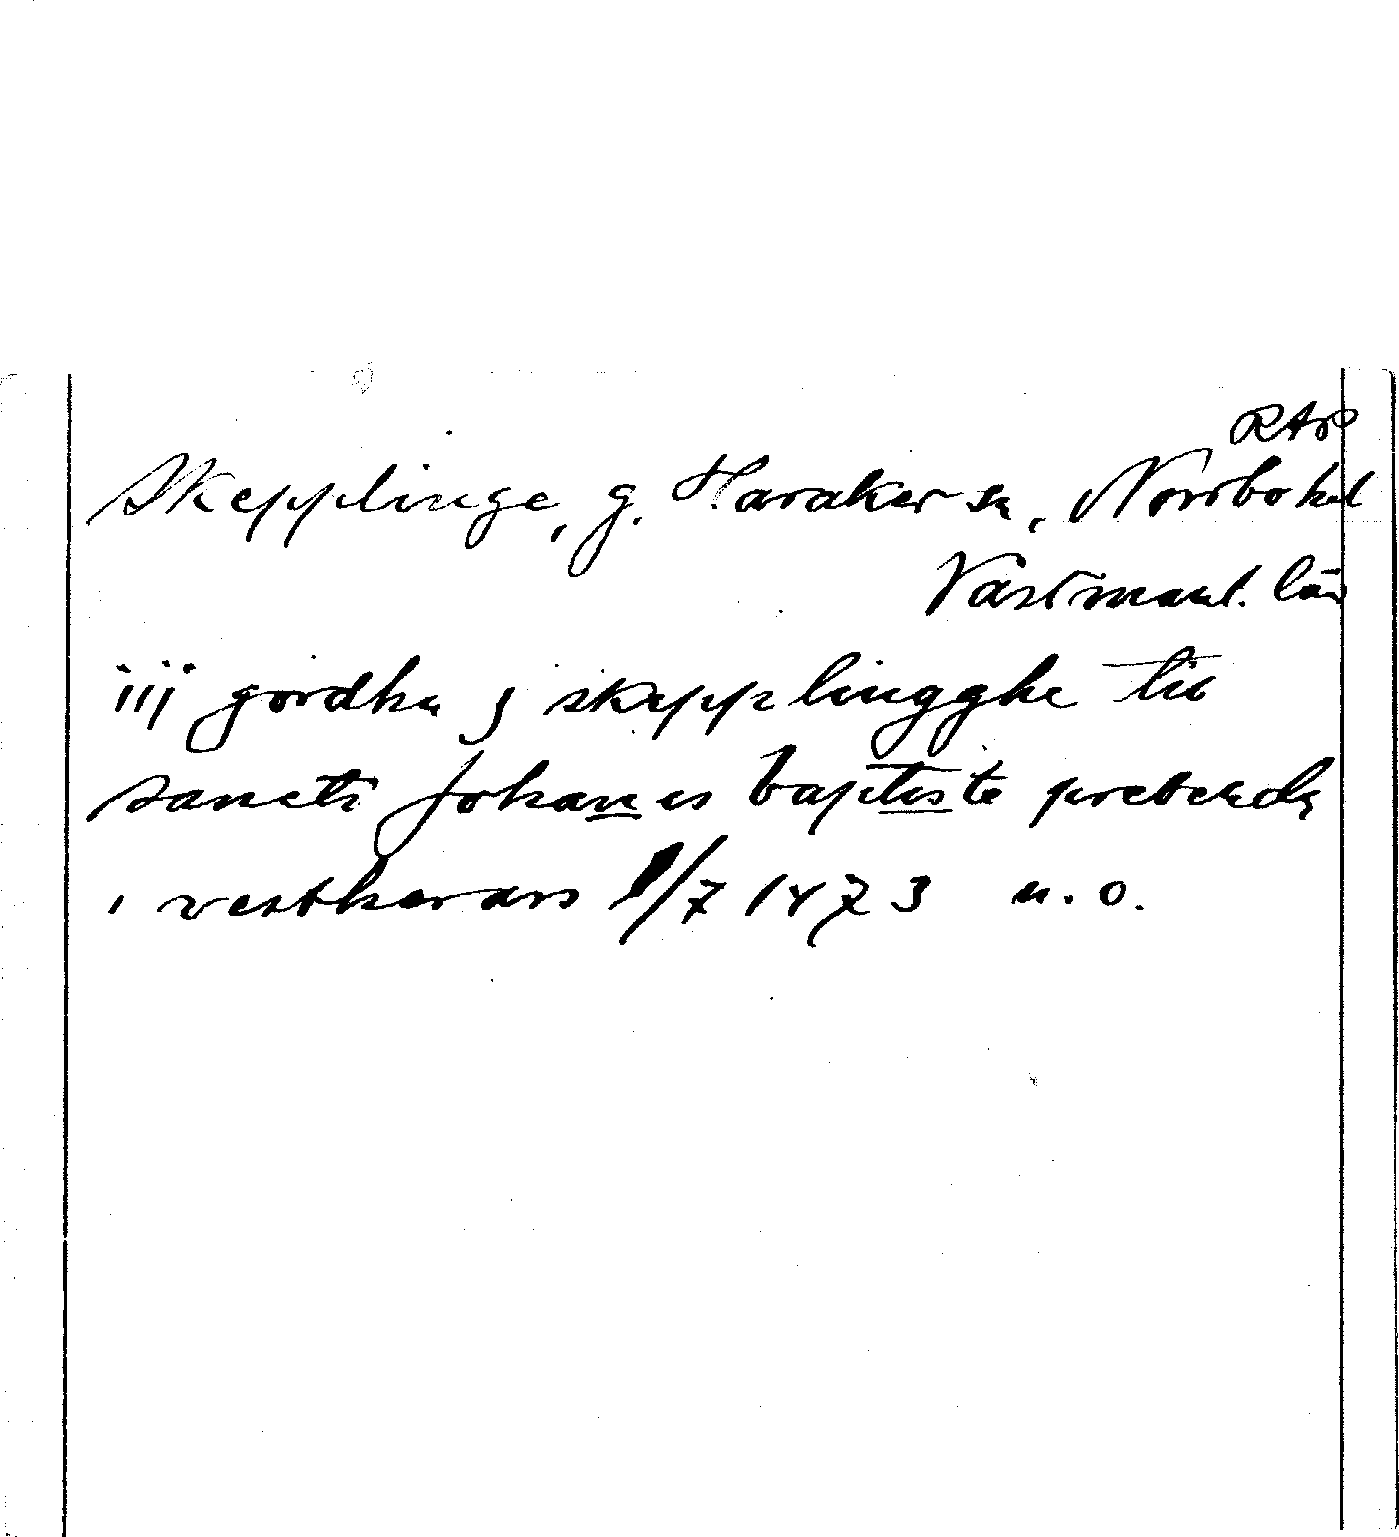 RAP
Skepplinge, g. Haraker sn, Norrbo hd
Västmanl. län
iij gordha j skepplingghe til
sancti Johanes baptiste prebenda
i vestherars 1/7 1473 u. o.